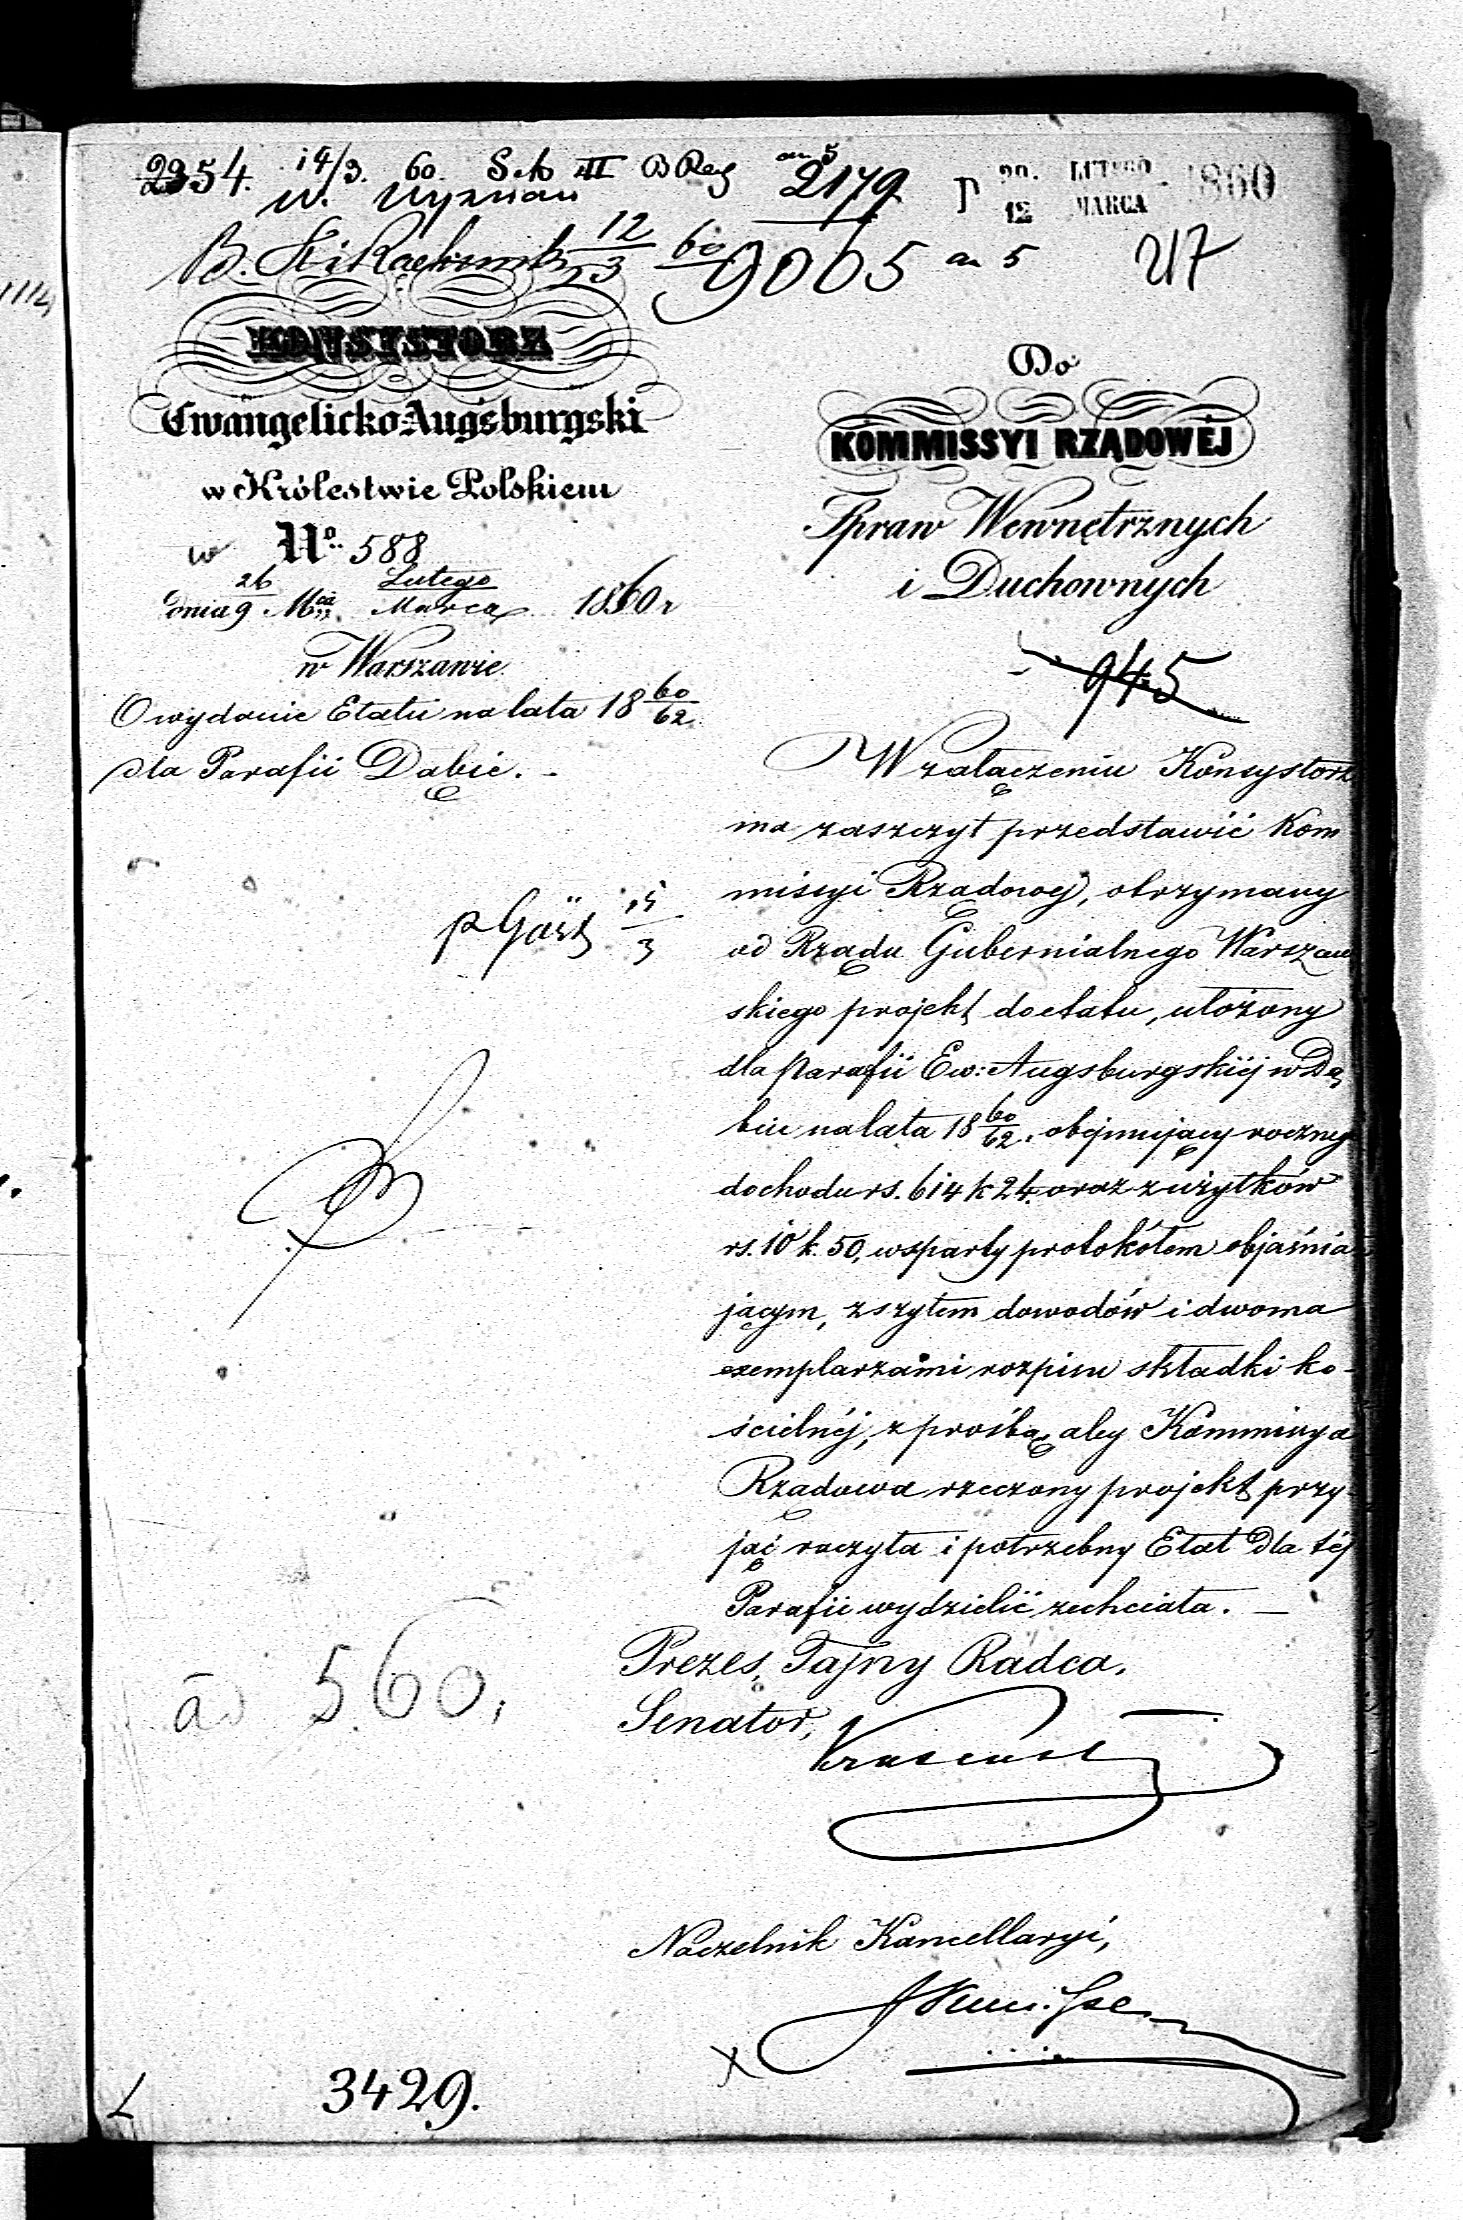 2354. 14/3. 60. Sek III B Reg an 5 2179 P 29. LUTEGO 12 MARCA 1860
W. Wyznań
12/3 60 9065 an 5 217
KONSYSTORZ
Ewangelicko-Augsburgski
w Królestwie Polskiem
w No. 588
dnia 26/9 Mca Lutego/Marca 1860 r
w Warszawie
O wydanie Etatu na lata 18 60/62
dla Parafii Dąbie. -
15/3
ad 560.
3429.
Do
KOMMISSYI RZĄDOWÉJ
Spraw Wewnętrznych
i Duchownych
945
W załączeniu Konsystorz
ma zaszczyt przedstawić Kom
missyi Rządowej, otrzymany
od Rządu Gubernialnego Warszaw
skiego projekt do etatu, ułożony
dla Parafii Ew: Augsburgskiéj w Dą
biu na lata 18 60/62, obejmujący roczny
dochodu rs. 614 k 24. oraz z użytków
rs. 10 k. 50, wsparty protokółem objaśnia
jącym, zszytem dowodów i dwoma
exemplarzami rozpisu składki ko-
ścielnéj, z prośbą aby Kommissya
Rządowa rzeczony projekt przy
jąć raczyła i potrzebny Etat dla téj
Parafii wydzielić zechciała. —
Prezes, Tajny Radca,
Senator,
Naczelnik Kancellaryi,